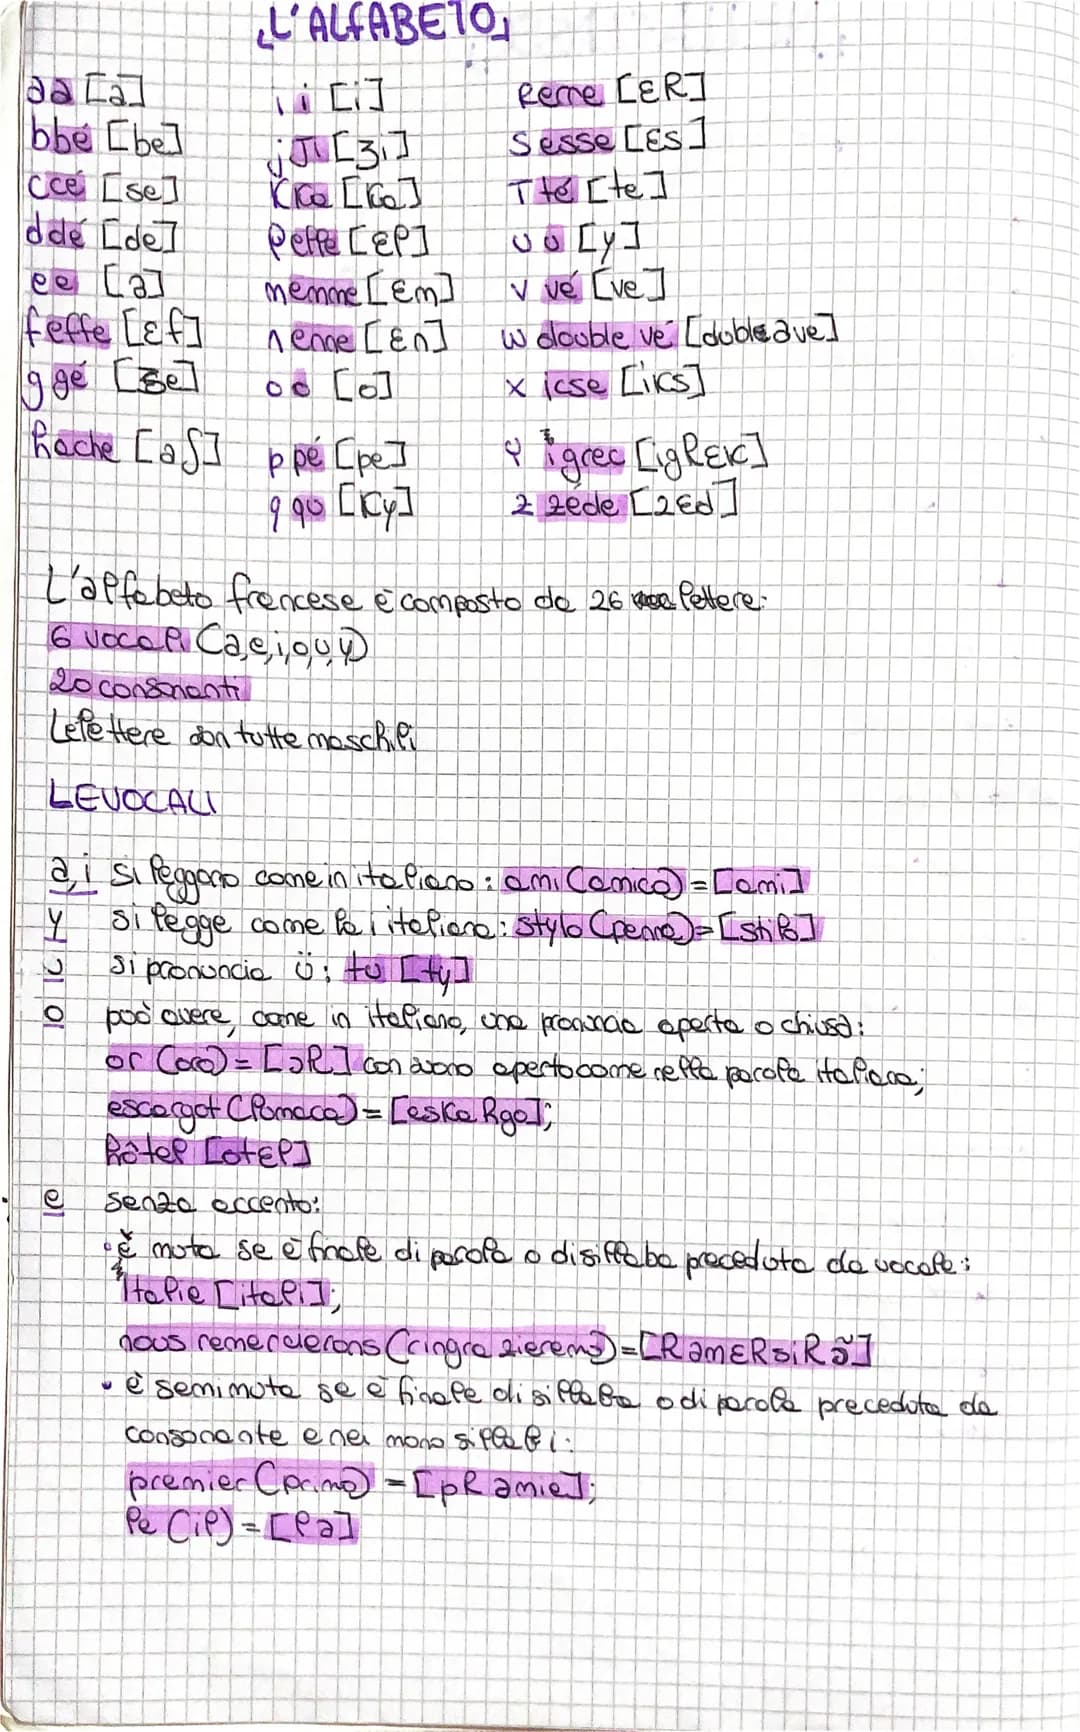 L'ALFABETO
a a [a]
b bé [be]
c cé [se]
d dé [de]
e e [ə]
f effe [ɛf]
g gé [ʒe]
h ache [aʃ]
i i [i]
j Ji [ʒi]
K Ka [Ka]
l elle [ɛl]
m emme [ɛm]
n enne [ɛn]
o o [o]
p pé [pe]
q qu [Ky]
R erre [ɛR]
S esse [ɛs]
T té [te]
u u [y]
v vé [ve]
w double vé [dubləve]
x icse [iKs]
y igrec [igRɛK]
z zéde [zɛd]
L'alfabeto francese è composto da 26 lettere:
6 vocali (a,e,i,o,u,y)
20 consonanti
Le lettere son tutte maschili
LE VOCALI
a,i si leggono come in italiano: ami (amico) = [ami]
y si legge come la i italiana: stylo (penna) = [stilo]
u si pronuncia ü: tu [ty]
o può avere, come in italiano, una pronuncia aperta o chiusa:
or (oro) = [ɔR] con suono aperto come nella parola italiana;
escargot (lumaca) = [eskaRgo];
hôtel [otɛl]
e senza accento:
• è muta se è finale di parola o di sillaba preceduta da vocale:
Italie [itali];
nous remercierons (ringrazieremo) = [RəmɛRsiRɔ̃]
• è semimuta se è finale di sillaba o di parola preceduta da
consonante e nei monosillabi:
premier (primo) = [pRəmie];
le (il) = [lə]